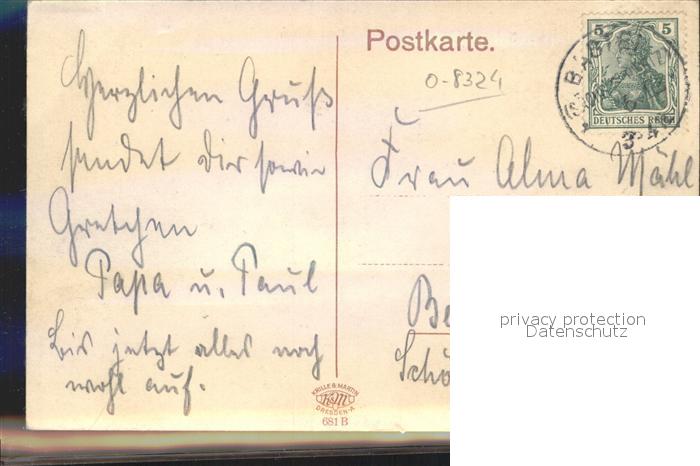 Postkarte.
5 5
DEUTSCHES REICH
0-8324
Herzlichen Gruß
sendet Dir sowie
Gretchen
Papa u. Paul
Bis jetzt alles noch
wohl auf.
Frau Alma Mähl
Be
Schö
KRILLE & MARTIN
K&M
DRESDEN-A
681 B
privacy protection
Datenschutz